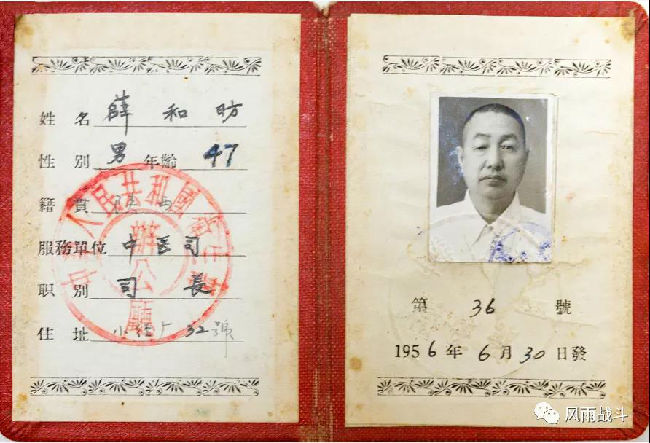 姓 名 薛 和 昉
性 别 男 年齡 47
籍 貫
服務單位 中医司
职 别 司 長
住 址 32號
中 人民共和國衛生部
辦公廳
第 36 號
1956年 6月30日發
风雨战斗